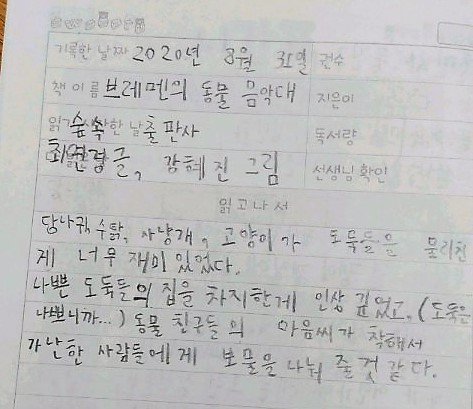 기록한 날짜 2020년 8월 31일 권수
책 이름 브레멘의 동물 음악대 지은이
읽기 시작한 날 숲속 출판사 독서량
최연경글, 강혜진 그림 선생님 확인
읽고나서
당나귀, 수탉, 사냥개, 고양이가 도둑들을 물리친
게 너무 재미 있었다.
나쁜 도둑들의 집을 차지한게 인상 깊었고, (도둑은
나쁘니까...) 동물 친구들의 마음씨가 착해서
가난한 사람들에게 보물을 나눠 줄 것 같다.